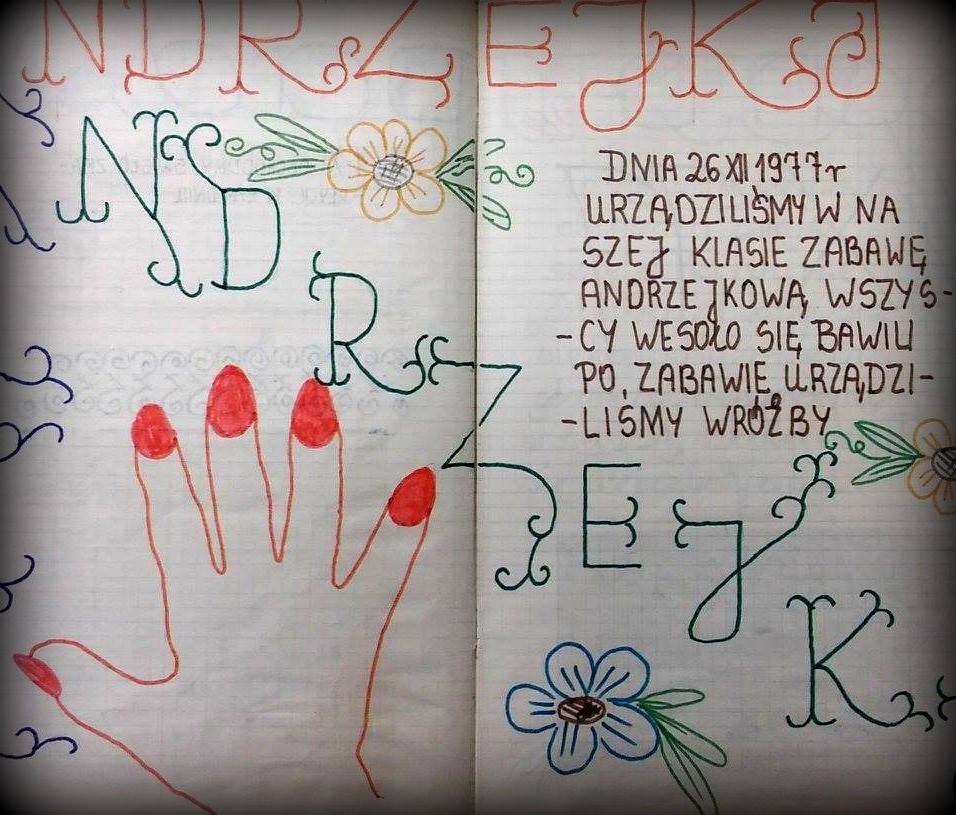 NDRZEJKI
NDRZEJK
DNIA 26 XII 1977 r
URZĄDZILIŚMY W NA
SZEJ KLASIE ZABAWĘ
ANDRZEJKOWĄ, WSZYS-
-CY WESOŁO SIĘ BAWILI
PO, ZABAWIE URZĄDZI-
-LISMY WRÓŻBY